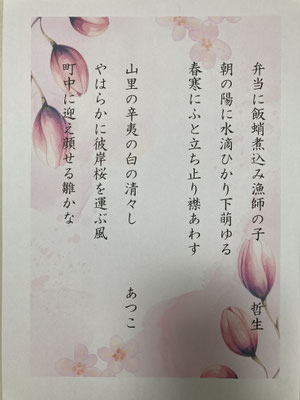 弁当に飯蛸煮込み漁師の子
哲生
朝の陽に水滴ひかり下萌ゆる
春寒にふと立ち止り襟あわす
山里の辛夷の白の清々し
あつこ
やはらかに彼岸桜を運ぶ風
町中に迎え顔せる雛かな